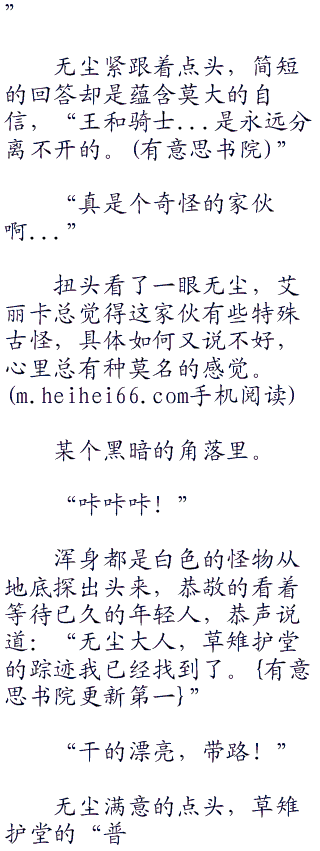 ”
无尘紧跟着点头，简短
的回答却是蕴含莫大的自
信，“王和骑士...是永远分
离不开的。(有意思书院)”
“真是个奇怪的家伙
啊...”
扭头看了一眼无尘，艾
丽卡总觉得这家伙有些特殊
古怪，具体如何又说不好，
心里总有种莫名的感觉。
(m.heihei66.com手机阅读)
某个黑暗的角落里。
“咔咔咔！”
浑身都是白色的怪物从
地底探出头来，恭敬的看着
等待已久的年轻人，恭声说
道：“无尘大人，草雉护堂
的踪迹我已经找到了。{有意
思书院更新第一}”
“干的漂亮，带路！”
无尘满意的点头，草雉
护堂的“普